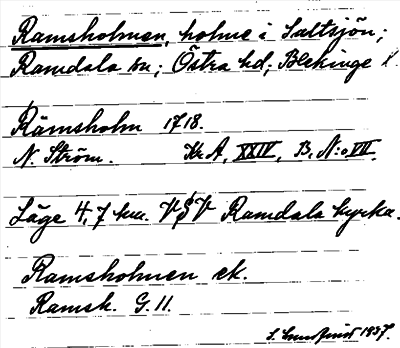 Ramsholmen, holme i Saltsjön;
Ramdala sn; Östra hd; Blekinge l.
Rämsholm 1718.
N. Ström. Kr A, XXIV, B. N:o VII.
Läge 4,7 km. VSV Ramdala kyrka.
Ramsholmen ek.
Ramsh. G. 11.
1937.